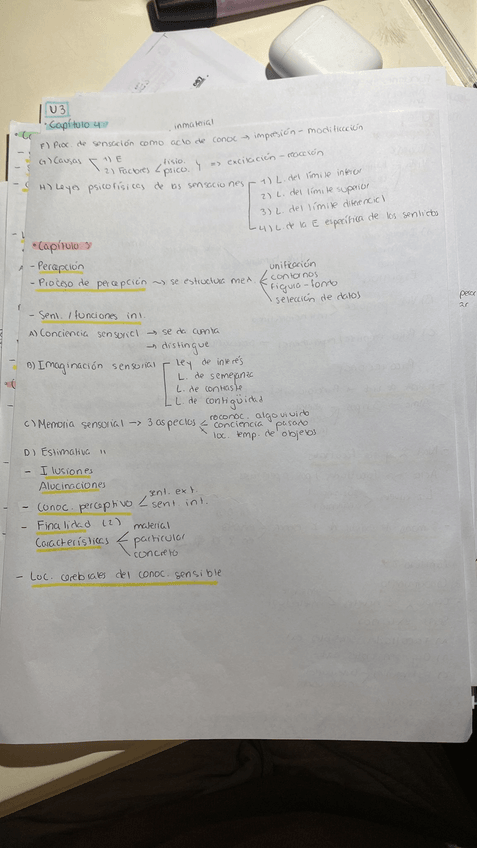 U3
• Capítulo 4
inmaterial
F) Proc. de sensación como acto de conoc → impresión - modificación
G) Causas 1) E
2) Factores fisio. y psico. => excitación - reacción
H) Leyes psicofísicas de las sensaciones 1) L. del límite inferior
2) L. del límite superior
3) L. del límite diferencial
4) L. de la E específica de los sentidos
• Capítulo 5
- Percepción
- Proceso de percepción → se estructura med. unificación
contornos
figura-fondo
selección de datos
- Sent. / funciones int.
A) Conciencia sensorial → se da cuenta
→ distingue
B) Imaginación sensorial Ley de interés
L. de semejanza
L. de contraste
L. de contigüidad
C) Memoria sensorial → 3 aspectos reconoc. algo vivido
conciencia pasado
loc. temp. de objetos
D) Estimativa "
- Ilusiones
Alucinaciones
- Conoc. perceptivo sent. ext.
sent int.
- Finalidad (2)
Características material
particular
concreto
- Loc. cerebrales del conoc. sensible